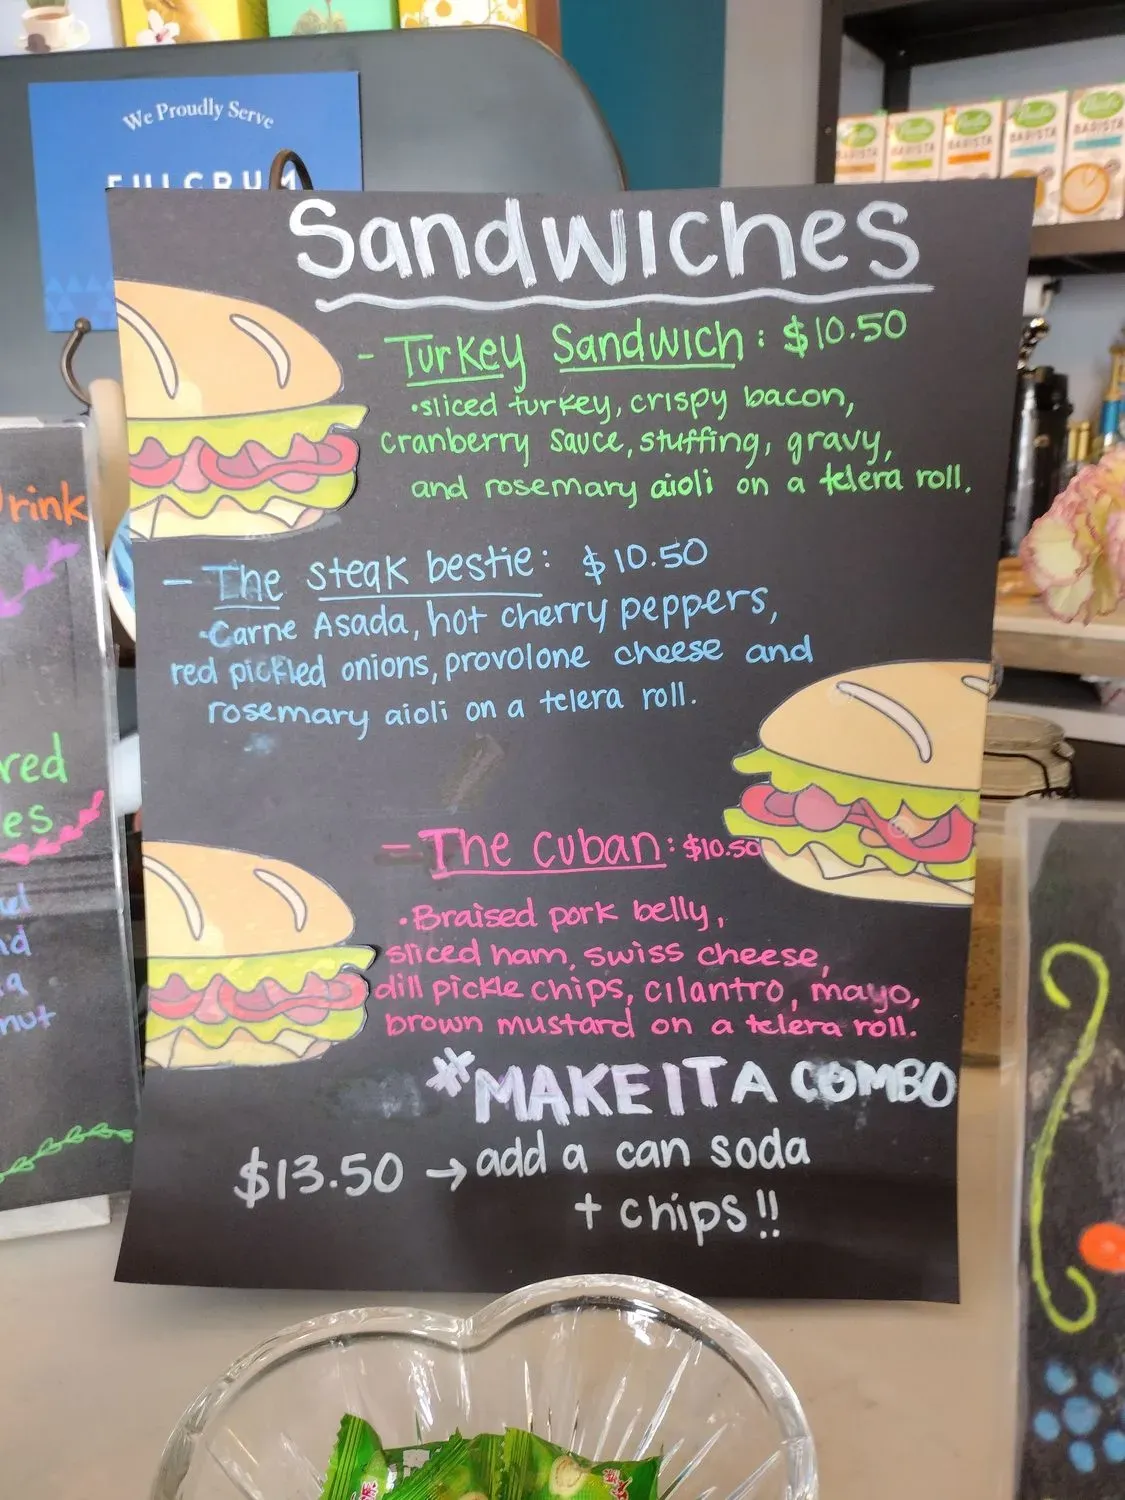 We Proudly Serve
FULCRUM
BARISTA
BARISTA
BARISTA
BARISTA
BARISTA
Sandwiches
- Turkey Sandwich: $10.50
•sliced turkey, crispy bacon,
cranberry sauce, stuffing, gravy,
and rosemary aioli on a telera roll.
- The steak bestie: $10.50
•Carne Asada, hot cherry peppers,
red pickled onions, provolone cheese and
rosemary aioli on a telera roll.
- The Cuban: $10.50
•Braised pork belly,
sliced ham, swiss cheese,
dill pickle chips, cilantro, mayo,
brown mustard on a telera roll.
*MAKE IT A COMBO
$13.50 → add a can soda
+ chips!!
Drink
red
es
nut